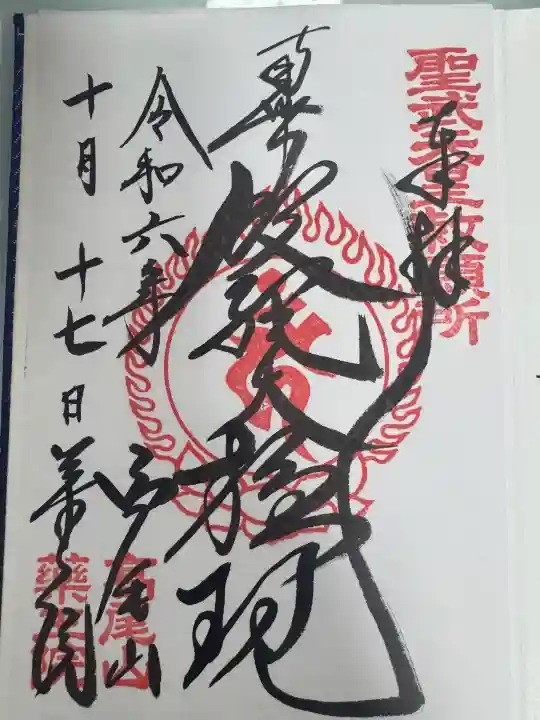 聖武天皇勅願所
奉拝
奉飯縄大権現
令和六年
十月十七日
高尾山
薬王院
高尾山
藥王院